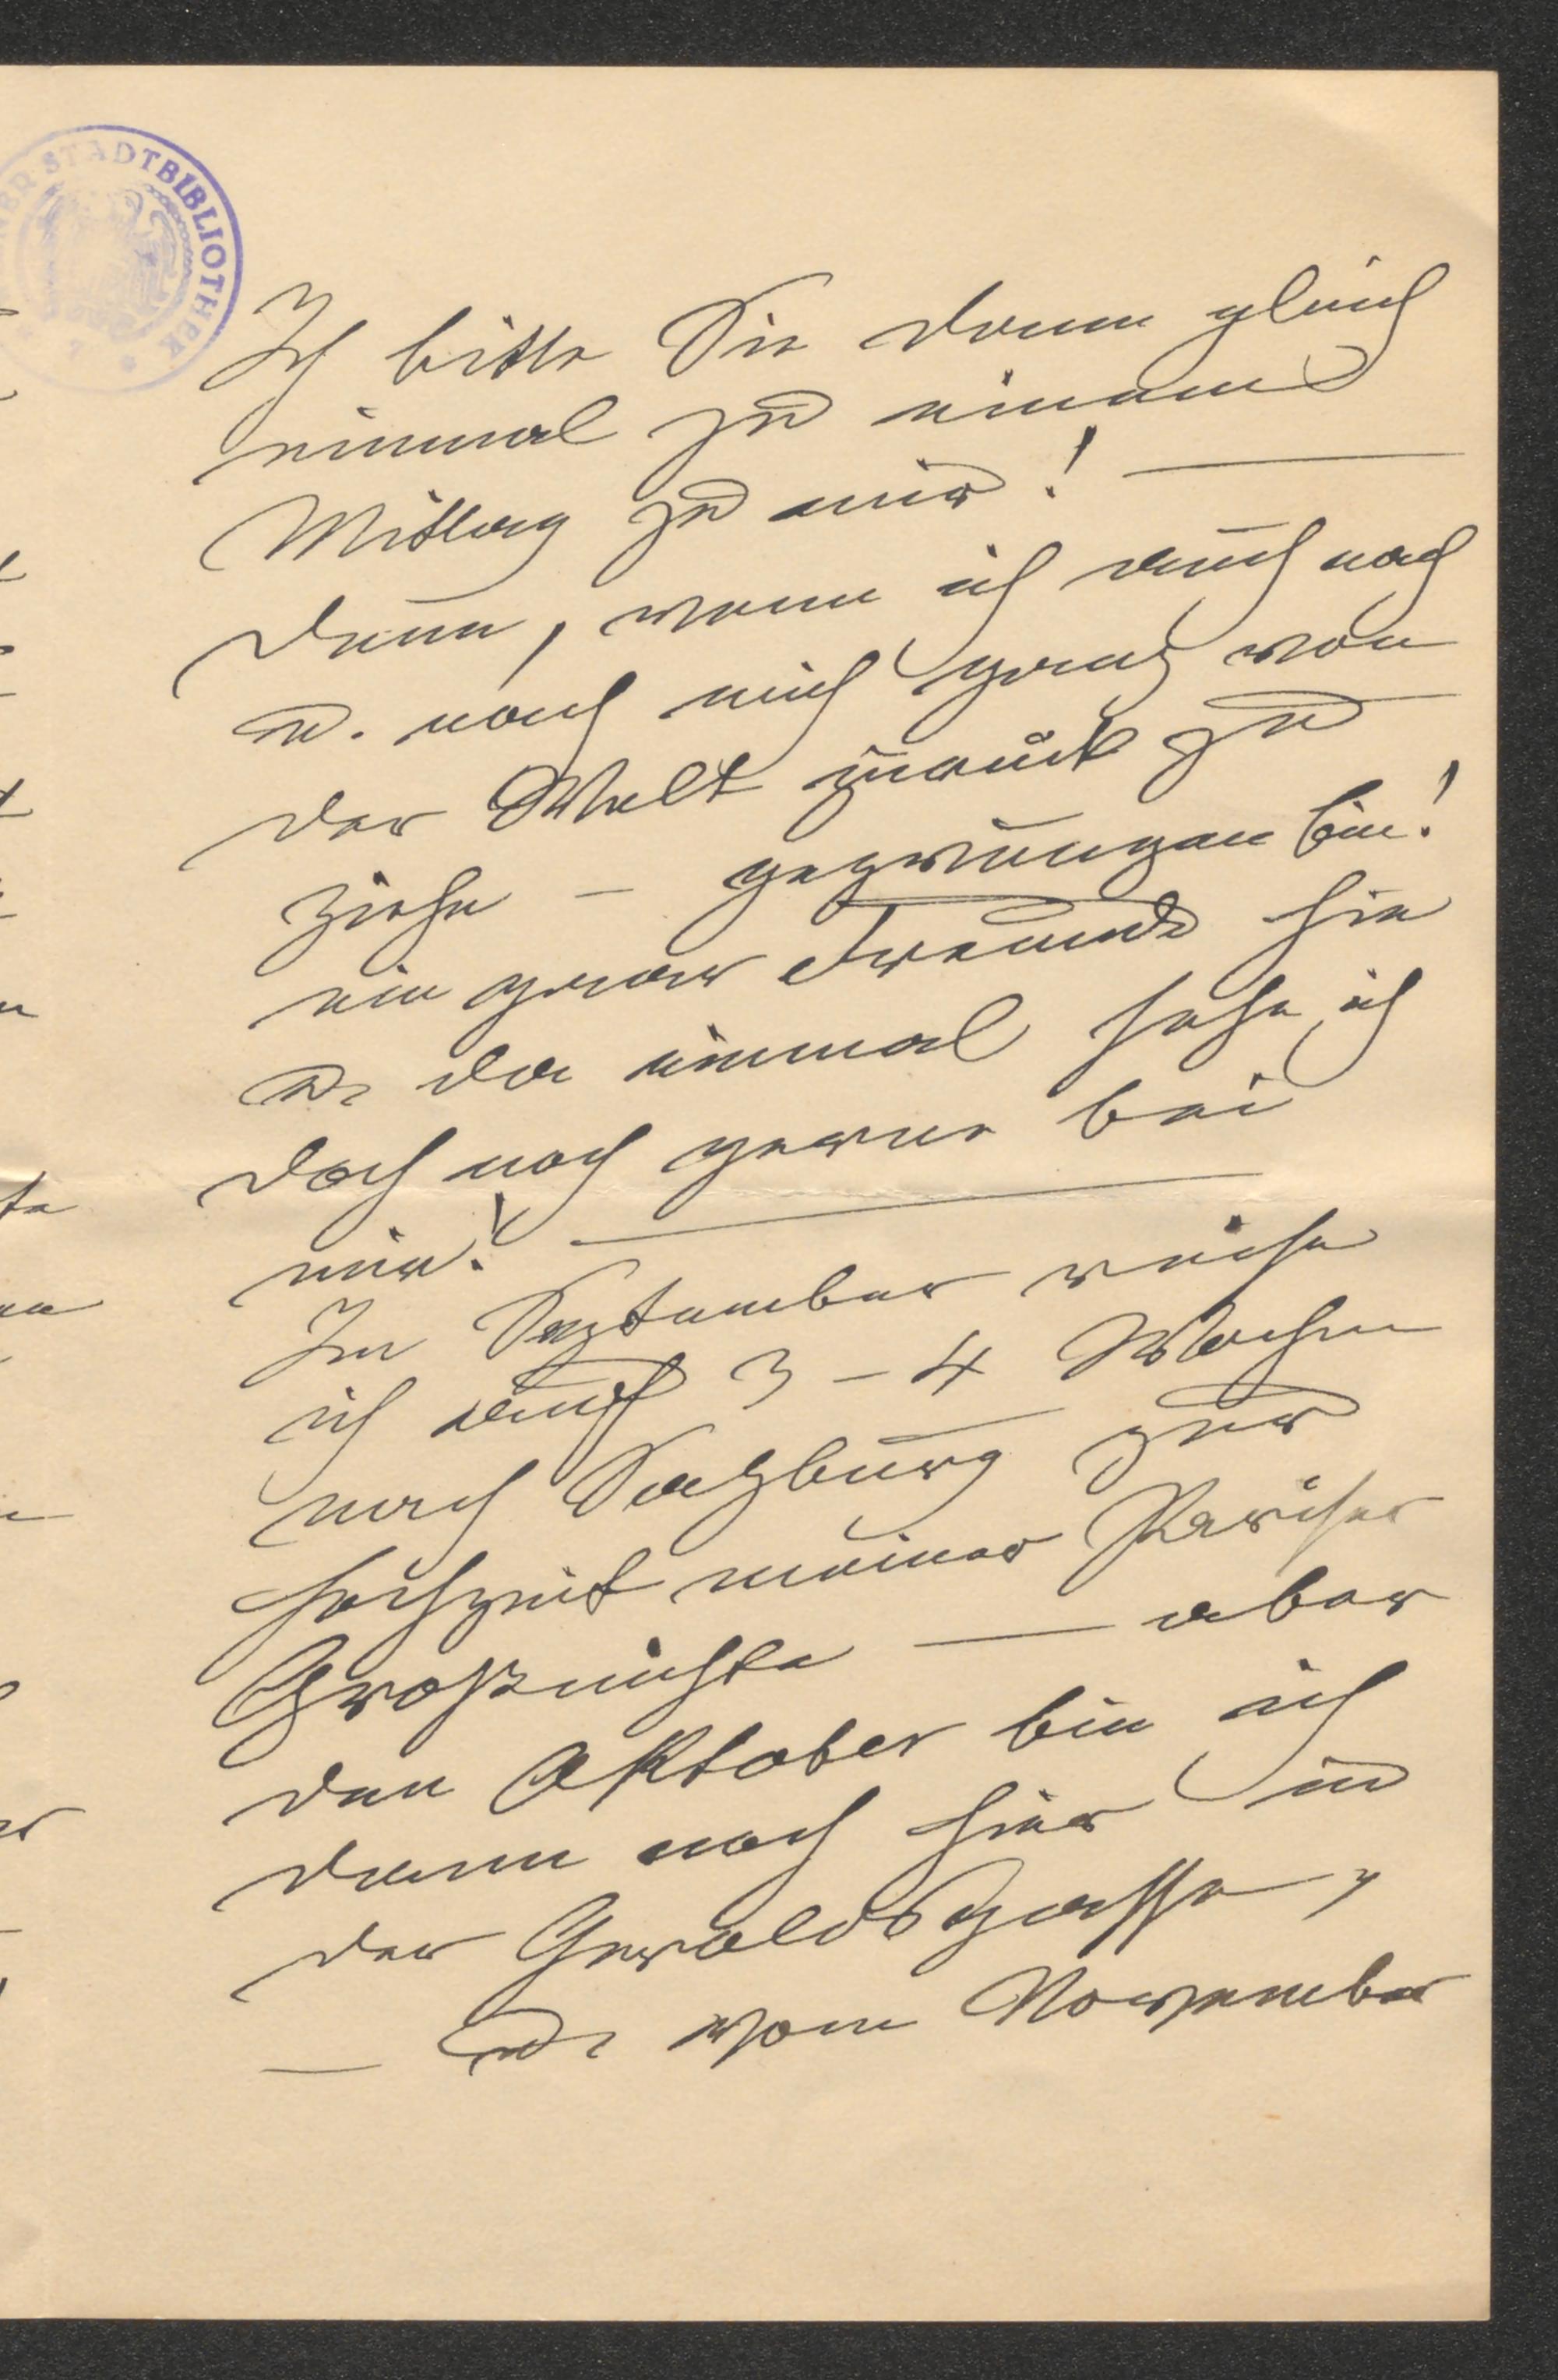 STADTBIBLIOTHEK
Ich bitte Sie dann gleich
einmal zu einem
Mittag zu mir! —
Denn, wenn ich auch nach
u. nach mich ganz von
der Welt zurück zu
ziehe – gezwungen bin!
ein paar Freunde hie
u. da einmal sehe ich
doch noch gerne bei
mir! —
Im September reise
ich auf 3 – 4 Wochen
nach Salzburg zur
Hochzeit meiner Pariser
Großnichte — aber
den Oktober bin ich
dann noch hier in
der Geroldsgasse,
— u. vom November